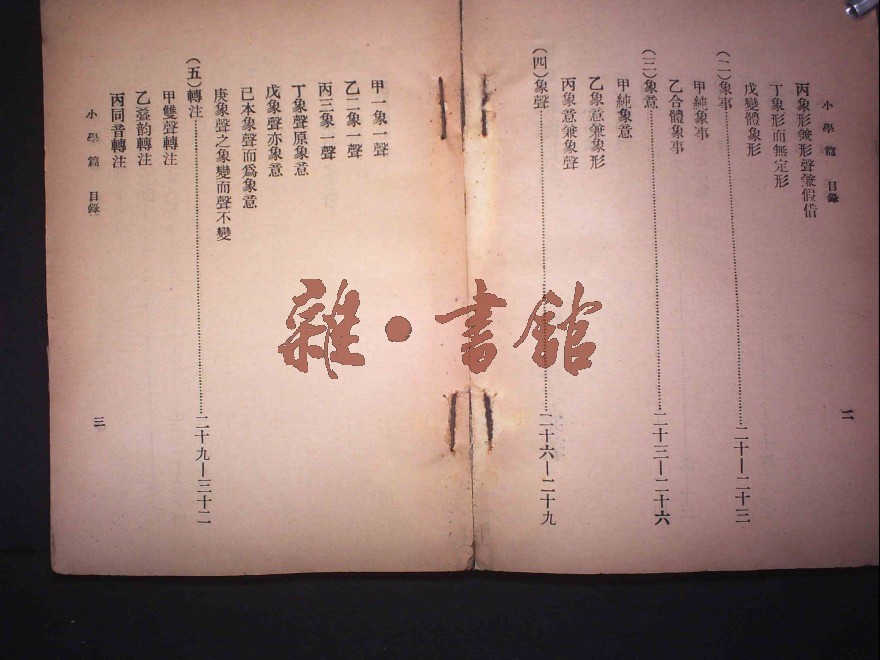 小學篇 目錄
丙象形兼形聲兼假借
丁象形而無定形
戊變體象形
(二)象事……二十—二十三
甲純象事
乙合體象事
(三)象意……二十三—二十六
甲純象意
乙象意兼象形
丙象意兼象聲
(四)象聲……二十六—二十九
二
甲一象一聲
乙二象一聲
丙三象一聲
丁象聲原象意
戊象聲亦象意
己本象聲而爲象意
庚象聲之象變而聲不變
(五)轉注……二十九—三十二
甲雙聲轉注
乙疊韵轉注
丙同音轉注
小學篇 目錄
三
雜·書館